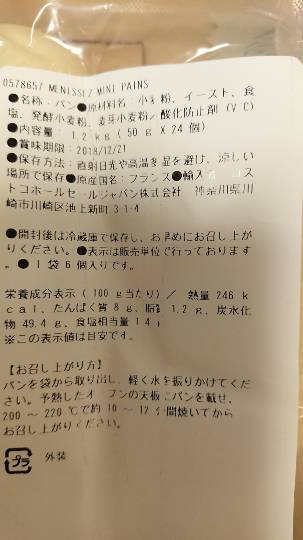 0578657 MENISSEZ MINI PAINS
●名称：パン●原材料名：小麦粉、イースト、食
塩、発酵小麦粉、麦芽小麦粉／酸化防止剤（V.C）
●内容量： 1.2kg（50g×24個）
●賞味期限：2018/12/21
●保存方法：直射日光や高温多湿を避け、涼しい
場所で保存●原産国名：フランス●輸入 コス
トコホールセールジャパン株式会社 神奈川県川
崎市川崎区池上新町 3-1-4
●開封後は冷蔵庫で保存し、お早めにお召し上が
りください。●表示は販売単位で行っております
。●1袋6個入りです。
栄養成分表示（100g当たり）／ 熱量 246 k
cal、たんぱく質 8g、脂質 1.2g、炭水化
物 49.4g、食塩相当量 1.4g
※この表示値は目安です。
【お召し上がり方】
パンを袋から取り出し、軽く水を振りかけてくだ
さい。予熱したオーブンの天板にパンを載せ、
200 ～ 220℃で約 10 ～ 12分間焼いてから
お召し上がりください。
プラ 外装